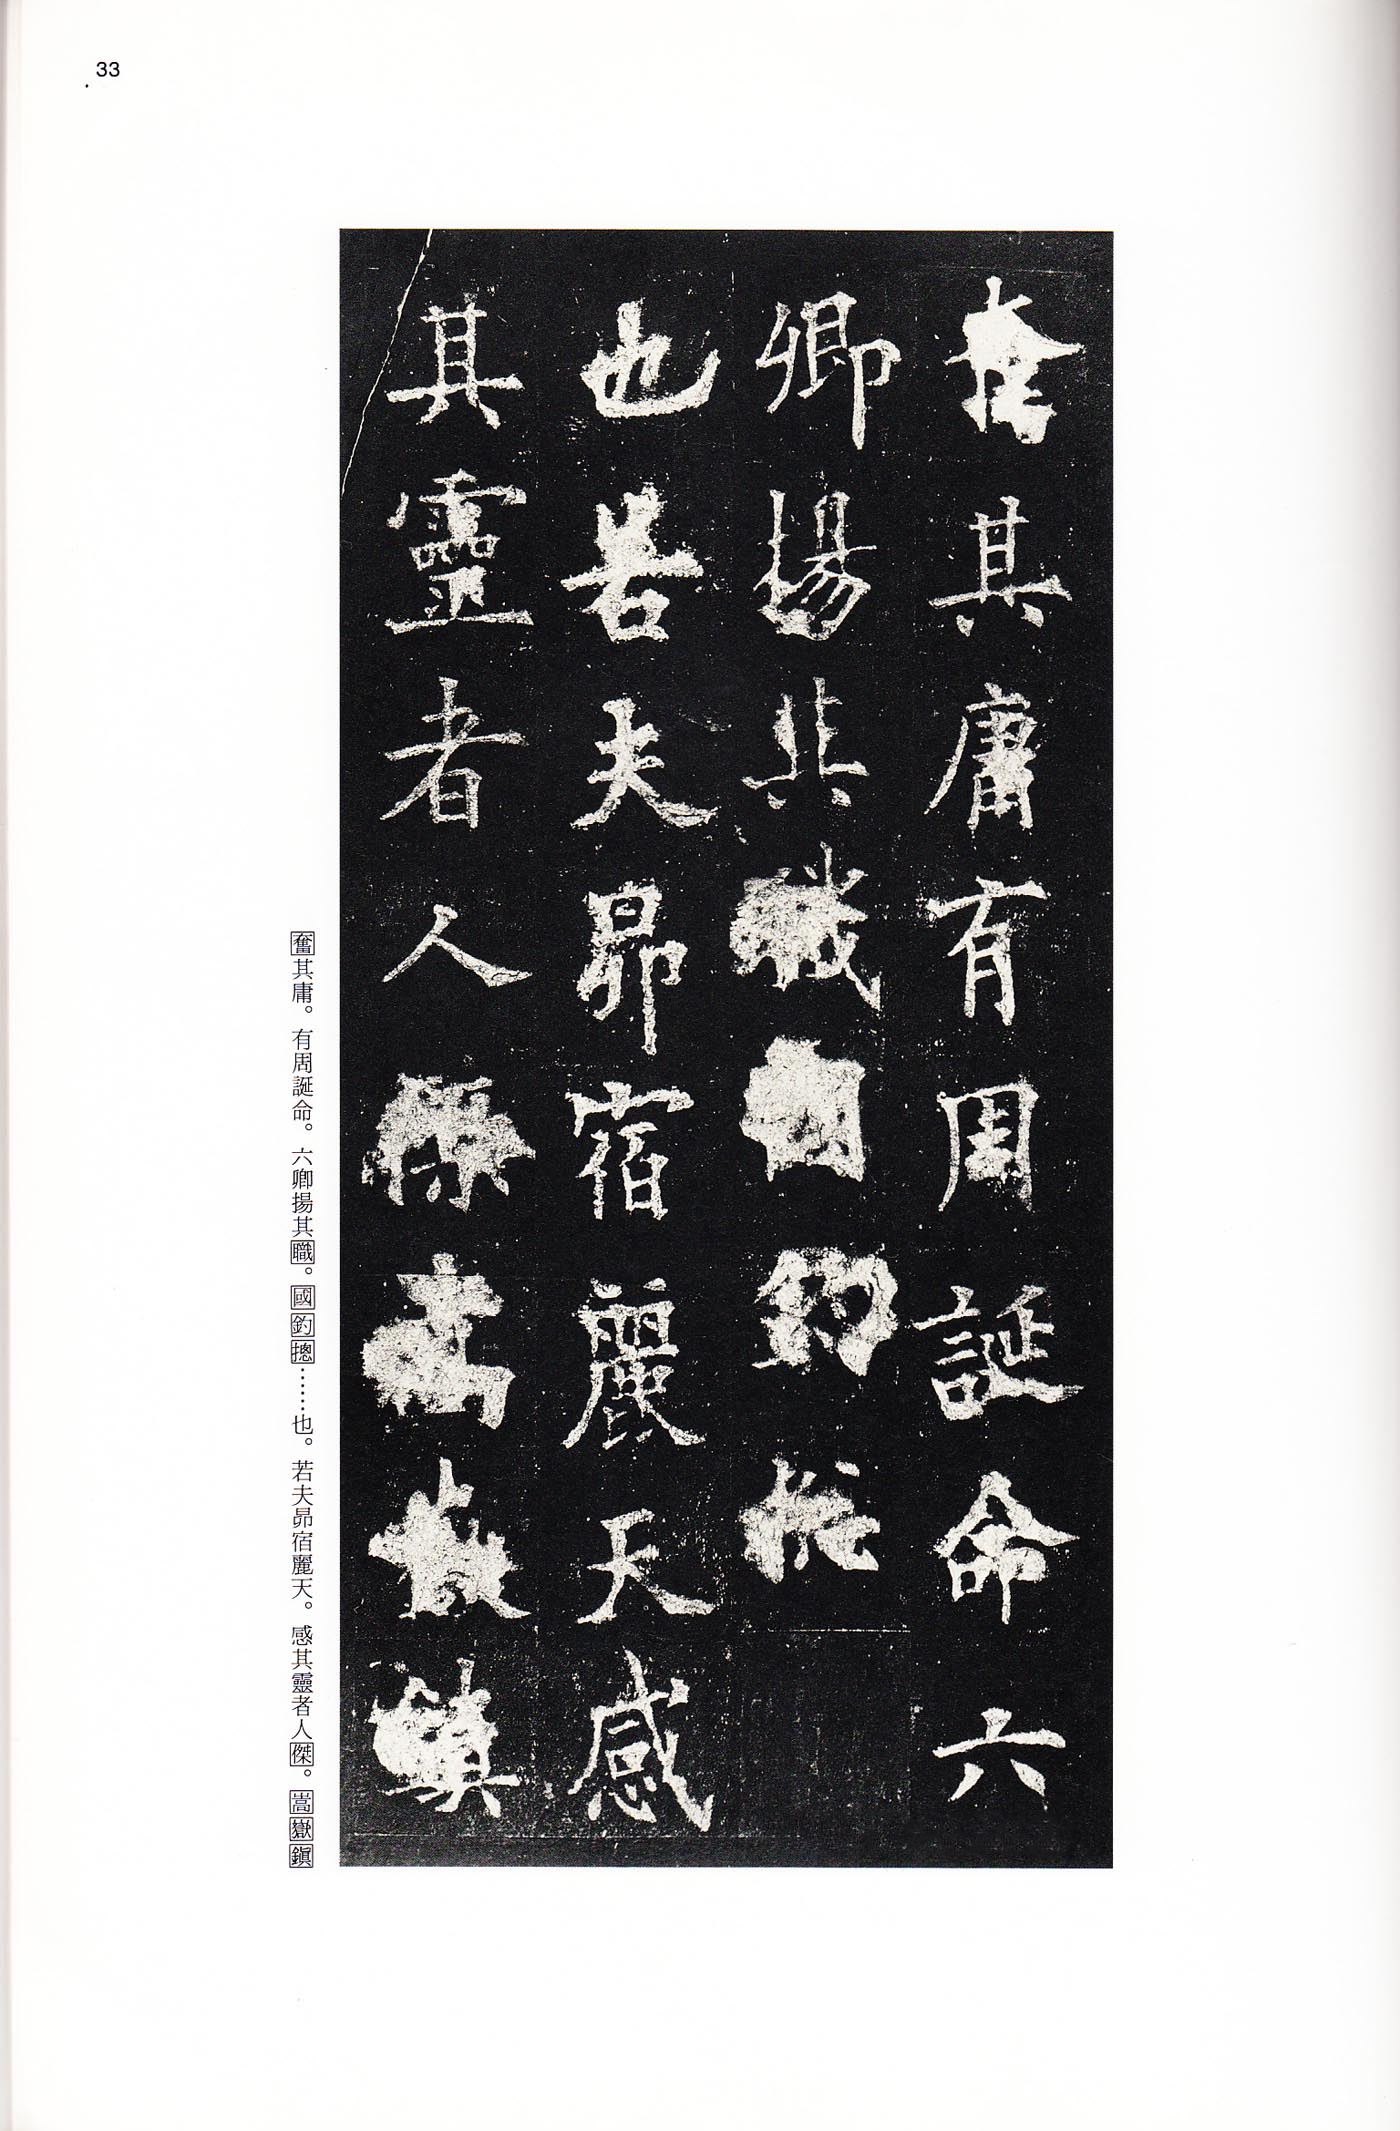 33
奮其庸有周誕命六
卿揚其職國釣摠
也若夫昴宿麗天感
其靈者人傑嵩嶽鎭
奮其庸。有周誕命。六卿揚其職。國釣摠……也。若夫昴宿麗天。感其靈者人傑。嵩嶽鎭